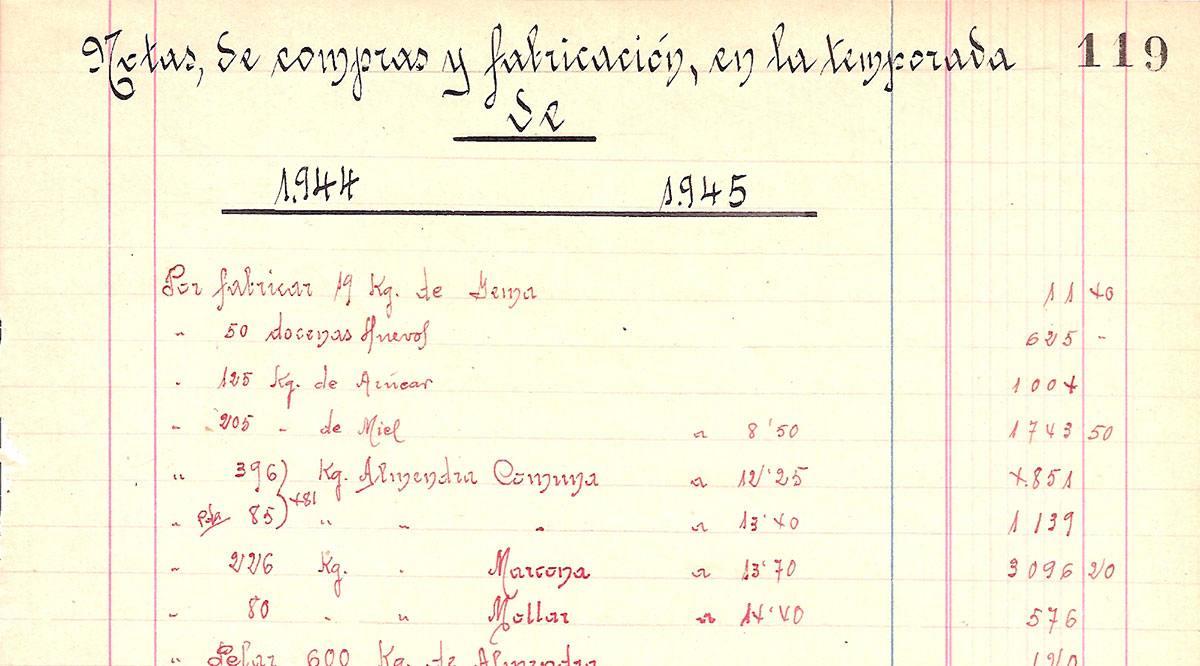 Notas, de compras y fabricación, en la temporada 119
de
1.944 1.945
Por fabricar 19 Kg. de Yema 11 40
" 50 docenas Huevos 625 -
" 125 Kg. de Azúcar 1004
" 205 " de Miel a 8'50 1743 50
" 396) Kg. Almendra Comuna a 12'25 4.851
" 85) 481 " " " a 13'40 1139
" 226 Kg. " Marcona a 13'70 3096 20
" 80 " " Mollar a 14'40 576
" Pelar 600 Kg. de Almendra 120